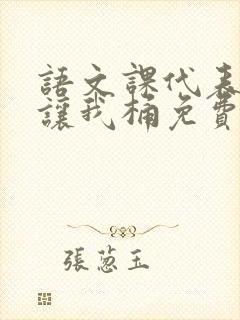 語文課代表
讓我桶免費
張蔥玉